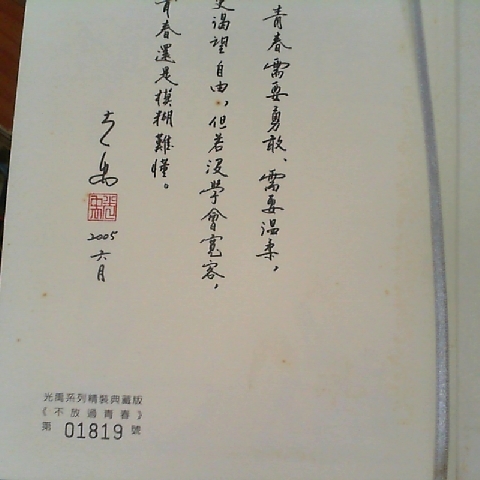 青春需要勇敢、需要温柔，
更渴望自由，但若沒學會寬容，
青春還是模糊難懂。
光禹
2005
六月
光禹系列精裝典藏版
《不放過青春》
第 01819 號